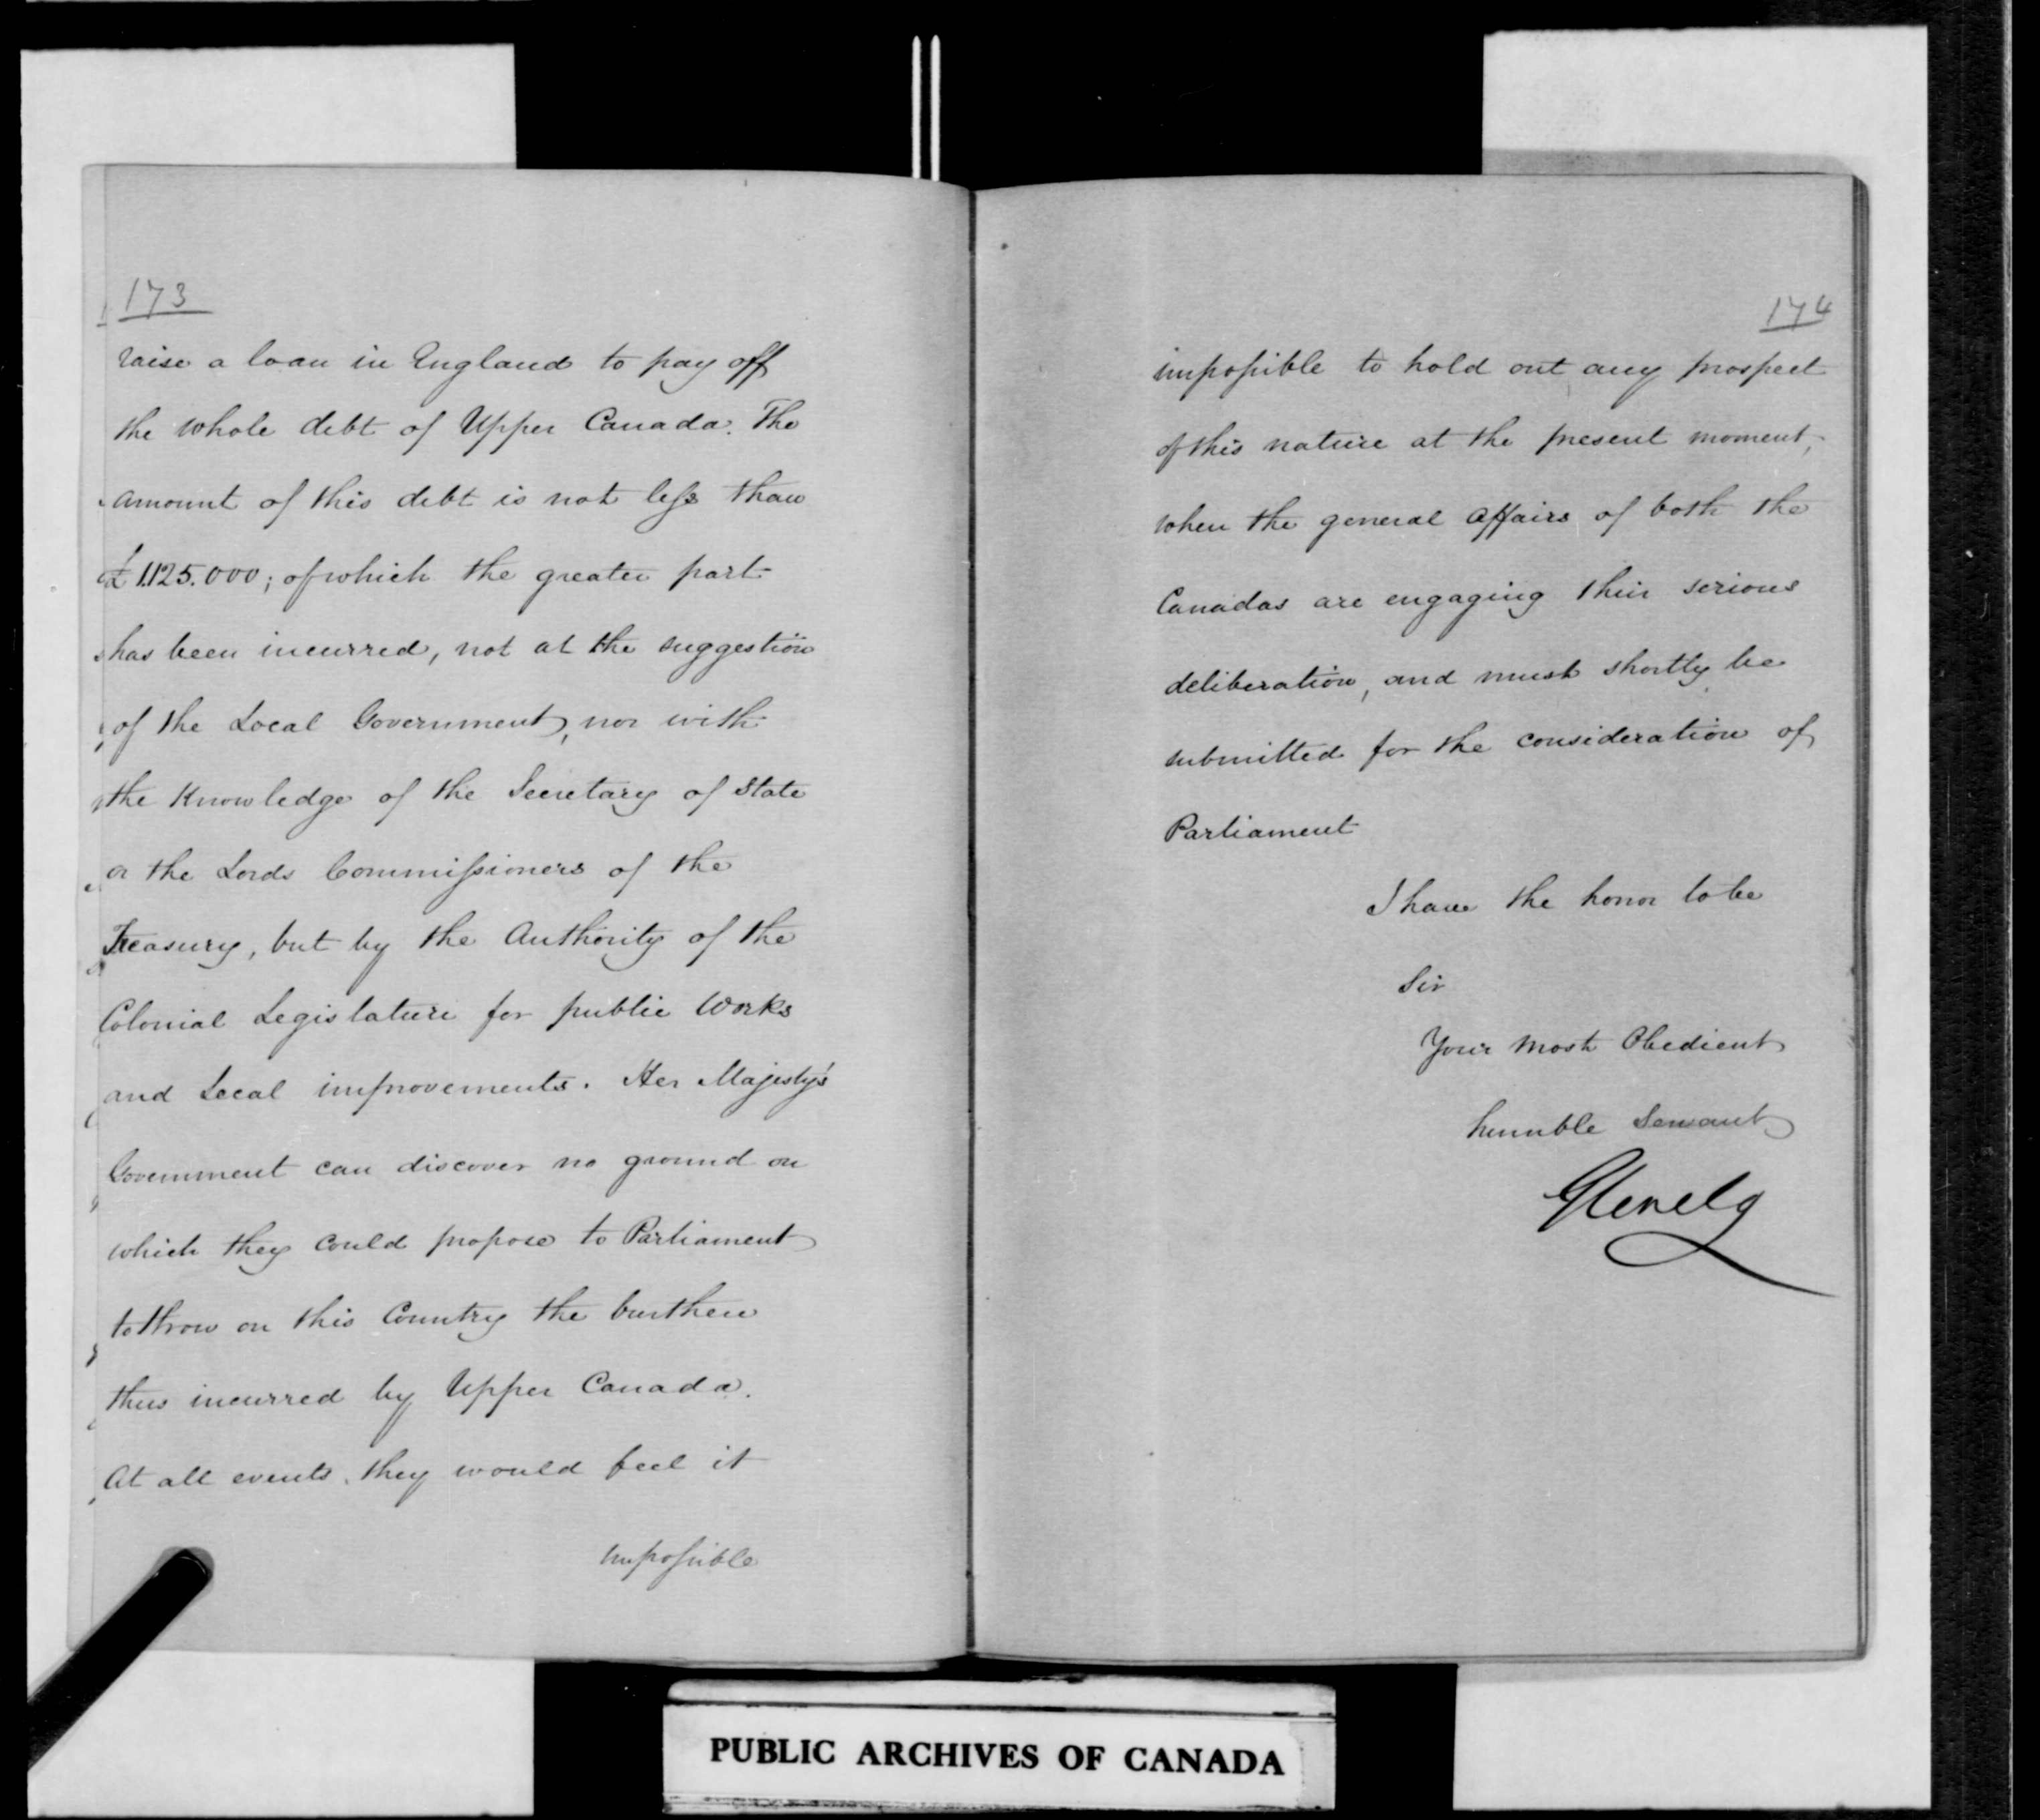 173
raise a loan in England to pay off
the whole debt of Upper Canada. The
amount of this debt is not less than
£1.125.000; of which the greater part
has been incurred, not at the suggestion
of the Local Government, nor with
the Knowledge of the Secretary of State
or the Lords Commissioners of the
Treasury, but by the Authority of the
Colonial Legislature for public Works
and Local improvements. Her Majesty's
Government can discover no ground on
which they could propose to Parliament
to throw on this Country the burthen
thus incurred by Upper Canada.
At all events, they would feel it
impossible
174
impossible to hold out any prospect
of this nature at the present moment,
when the general Affairs of both the
Canadas are engaging their serious
deliberation, and must shortly be
submitted for the consideration of
Parliament
I have the honor to be
Sir
Your Most Obedient
humble Servant
Glenelg
PUBLIC ARCHIVES OF CANADA